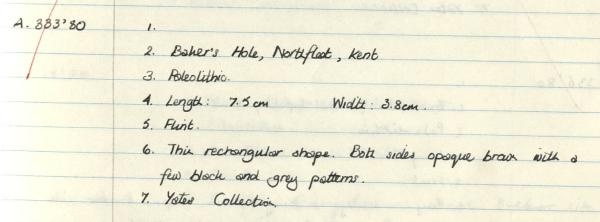 A. 333'80 1.
2. Baker's Hole, Northfleet, Kent
3. Paleolithic.
4. Length: 7.5cm Width: 3.8cm.
5. Flint.
6. Thin rectangular shape. Both sides opaque brown with a
few black and grey patterns.
7. Yates Collection